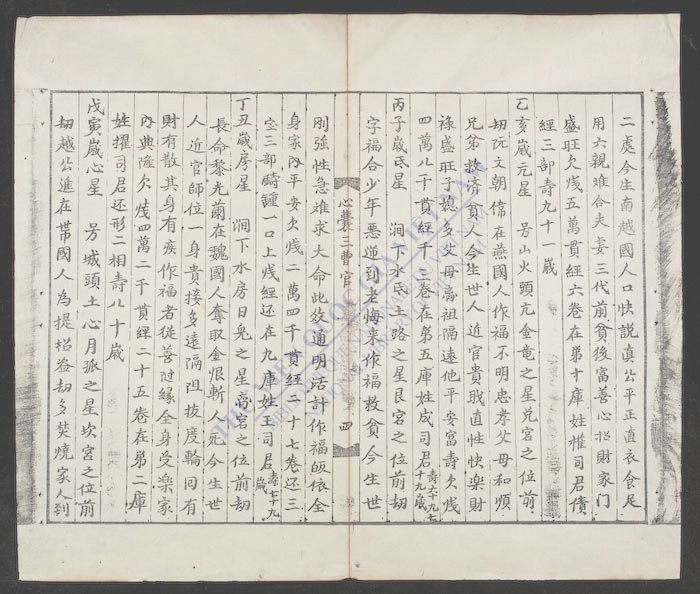 二處今生南越國人口快説真公平正直衣食足
用六親难合夫妻三代前貧後富善心招財家门
盛旺欠銭五萬貫經六卷在第十庫姓催司君債
經三部寿九十一嵗
乙亥嵗元星 屬山火頭亢金竜之星兑宮之位前
刼阮文朝係在燕國人作福不明忠孝父母和順
兄弟救濟貧人今生世人近官貴戝直性快樂財
禄盛旺子媳多父母离祖隔遠他平安富寿欠銭
四萬八千貫經千三卷在第五庫姓成司君寿六十九七十九嵗
丙子嵗氐星 澗下水氐土路之星艮宮之位前刼
字福合少年悪逆到老悔来作福救貧今生世
心曩三曹官
四
刚強性急难求大命此效通明活計作福皈依全
身家內平安欠銭二萬四千貫經二十七卷还三
宝三部鑄鍾一口上銭經还在九庫姓王司君寿七十九嵗
丁丑嵗房星 澗下水房日兎之星离宮之位前刼
長命黎光蘭在魏國人奪取金恨斬人死今生世
人近官師位一身貴接多遠隔阻抜度輪回有
財有散其身有疾作福者従善随縁全身受楽家
內典隆欠銭四萬二千貫經二十五卷在第二庫
姓擢司君还形二相壽八十嵗
戊寅嵗心星 屬城頭土心月孤之星坎宮之位前
刼越公進在帶國人為提招盗刼多焚燒家人到